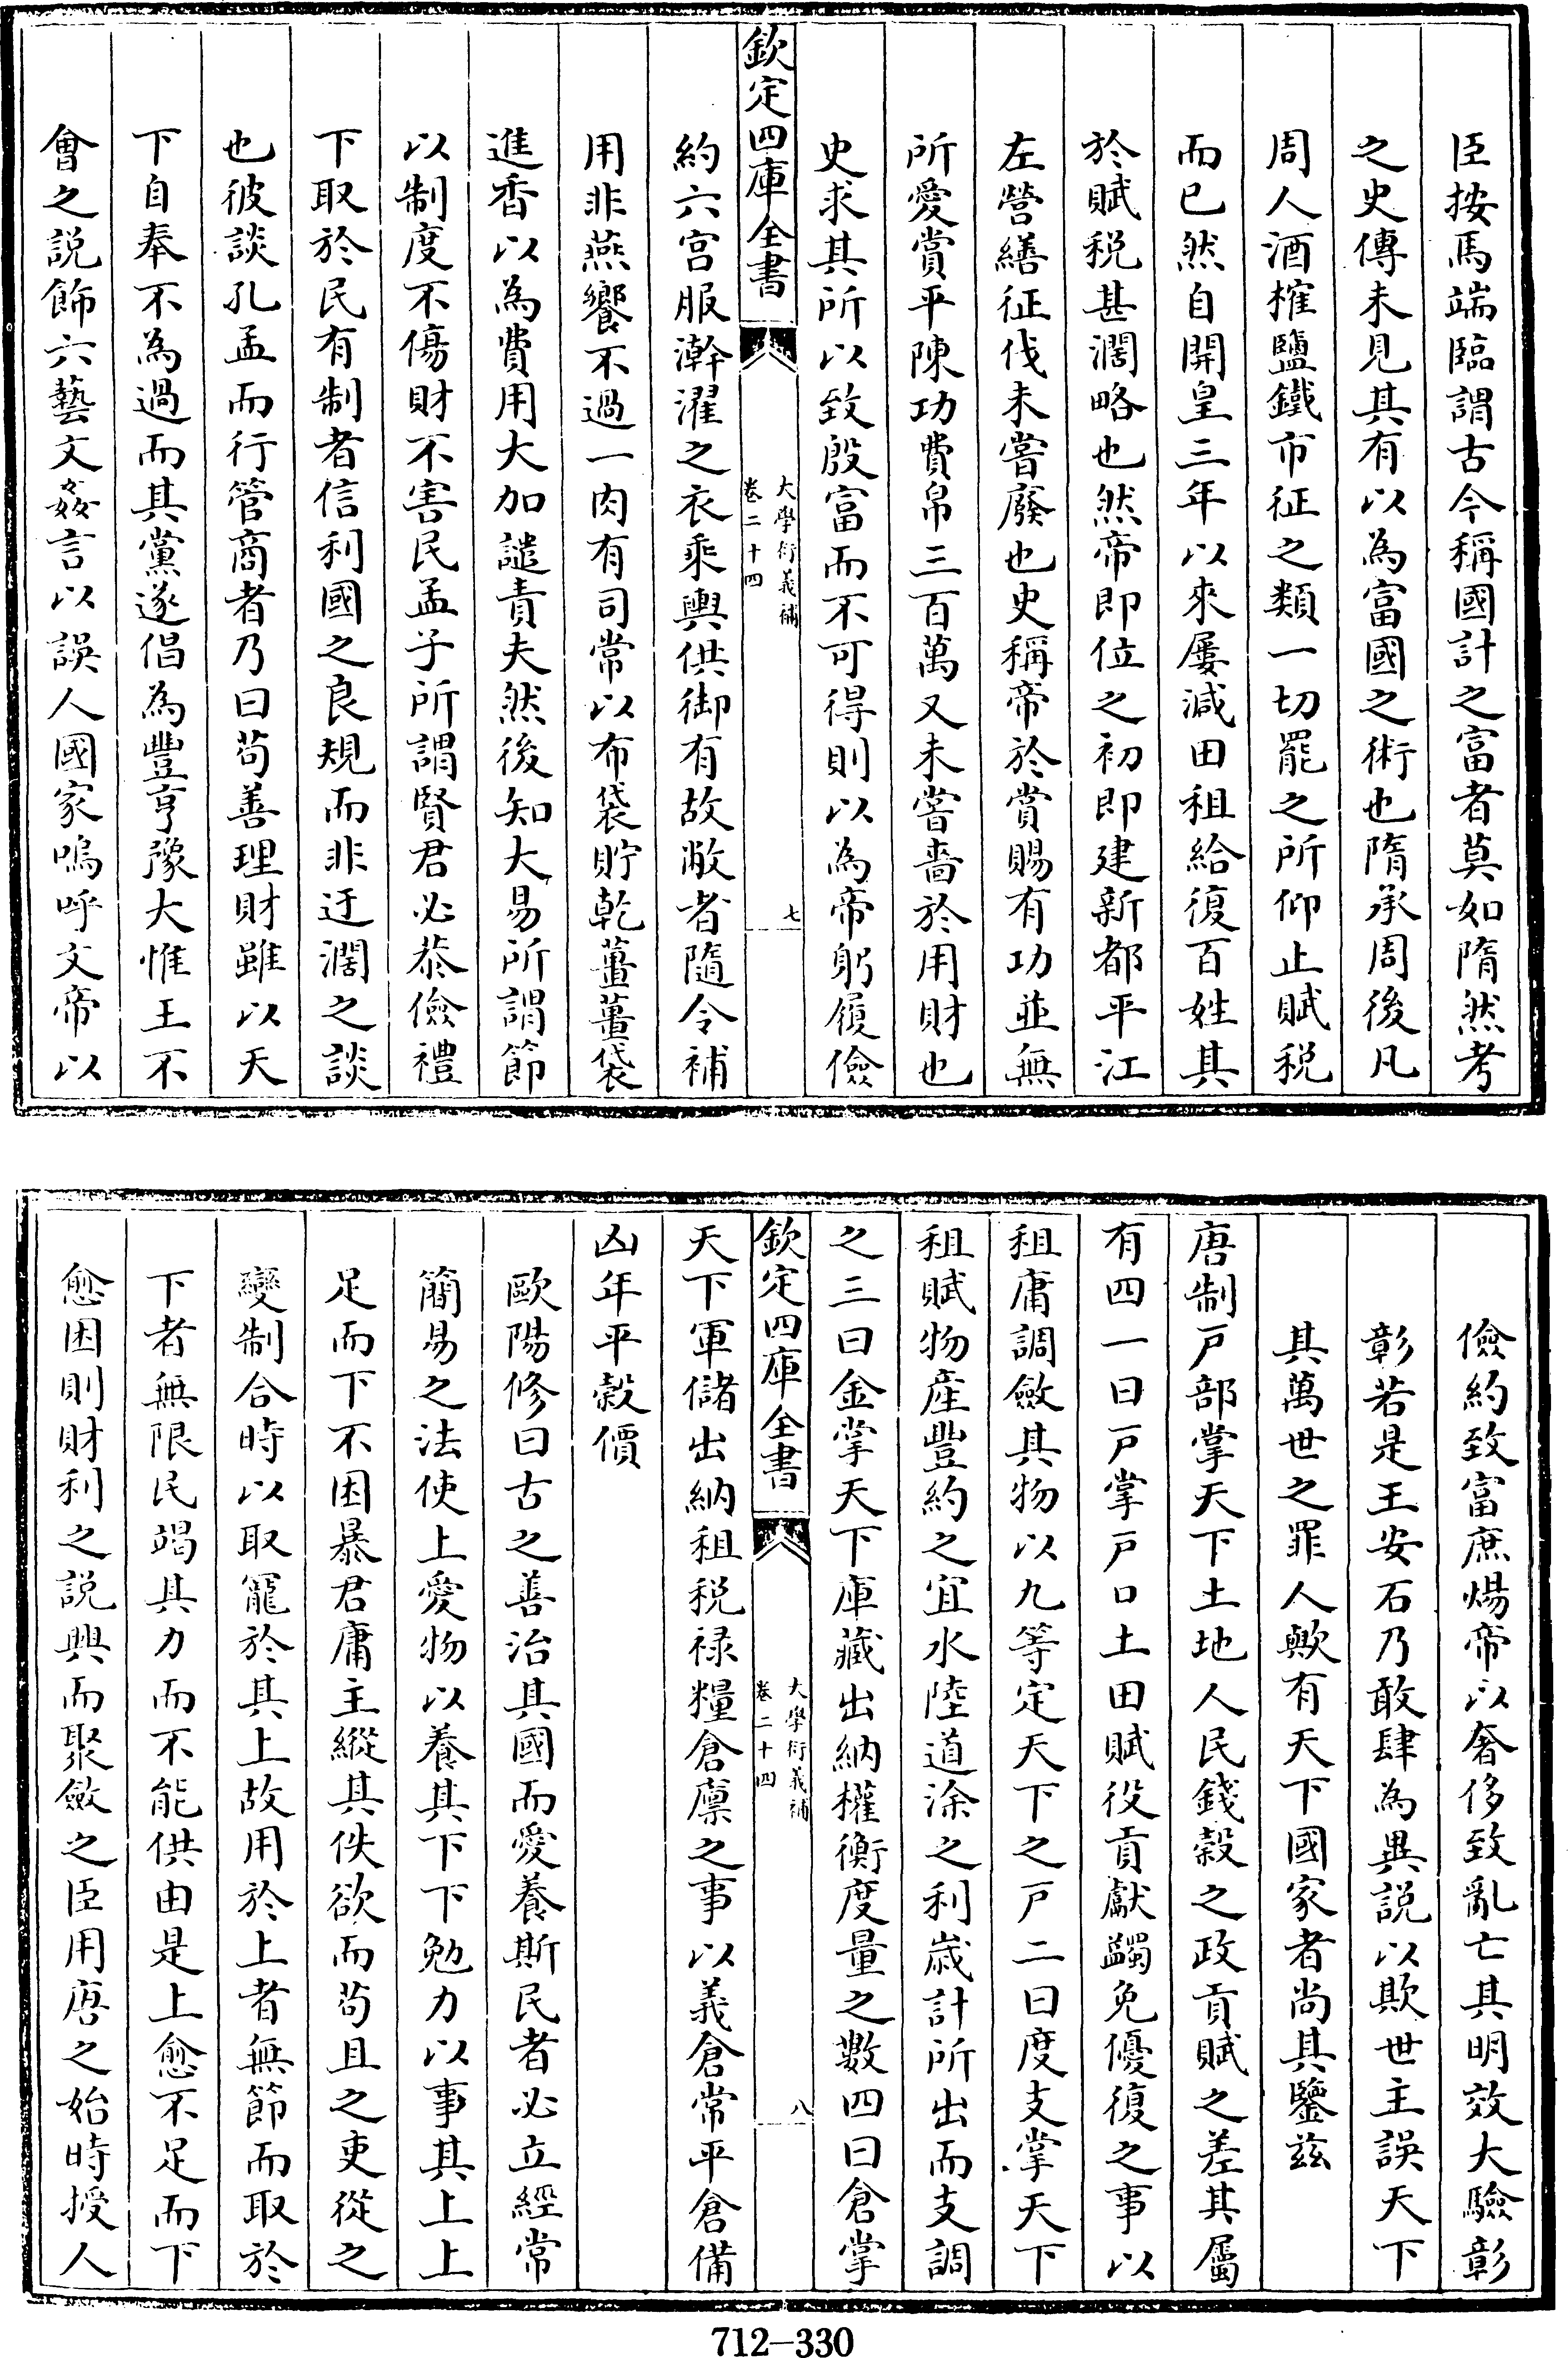 臣按馬端臨謂古今稱國計之富者莫如隋然考
之史傳未見其有以為富國之術也隋承周後凡
周人酒榷鹽鐵市征之類一切罷之所仰止賦稅
而已然自開皇三年以來屢減田租給復百姓其
於賦稅甚濶略也然帝即位之初即建新都平江
左營繕征伐未嘗廢也史稱帝於賞賜有功並無
所愛賞平陳功費帛三百萬又未嘗嗇於用財也
史求其所以致殷富而不可得則以為帝躬履儉
欽定四庫全書
大學衍義補
卷二十四
七
約六宮服澣濯之衣乘輿供御有故敝者隨令補
用非燕饗不過一肉有司常以布袋貯乾薑薑袋
進香以為費用大加譴責夫然後知大易所謂節
以制度不傷財不害民孟子所謂賢君必恭儉禮
下取於民有制者信利國之良規而非迂濶之談
也彼談孔孟而行管商者乃曰苟善理財雖以天
下自奉不為過而其黨遂倡為豐亨豫大惟王不
會之說飾六藝文姦言以誤人國家嗚呼文帝以
儉約致富庶煬帝以奢侈致亂亡其明效大驗彰
彰若是王安石乃敢肆為異說以欺世主誤天下
其萬世之罪人歟有天下國家者尚其鑒茲
唐制戸部掌天下土地人民錢穀之政貢賦之差其屬
有四一曰戸掌戸口土田賦役貢獻蠲免優復之事以
租庸調斂其物以九等定天下之戸二曰度支掌天下
租賦物産豐約之宜水陸道涂之利歲計所出而支調
之三曰金掌天下庫藏出納權衡度量之數四曰倉掌
欽定四庫全書
大學衍義補
卷二十四
八
天下軍儲出納租稅祿糧倉廩之事以義倉常平倉備
凶年平穀價
歐陽修曰古之善治其國而愛養斯民者必立經常
簡易之法使上愛物以養其下下勉力以事其上上
足而下不困暴君庸主縱其佚欲而苟且之吏從之
變制合時以取寵於其上故用於上者無節而取於
下者無限民竭其力而不能供由是上愈不足而下
愈困則財利之說興而聚斂之臣用唐之始時授人
712-330